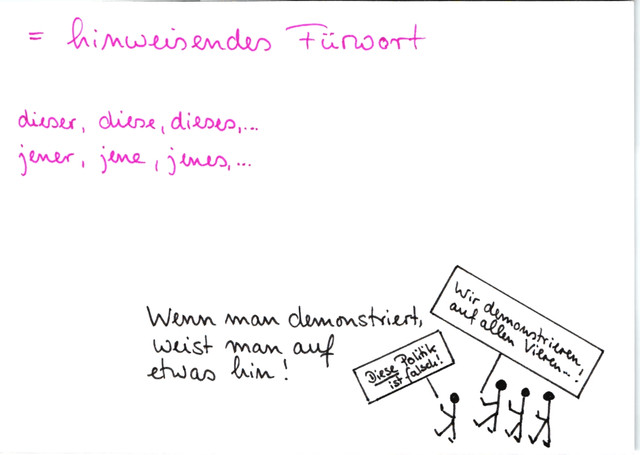 = hinweisendes Fürwort
dieser, diese, dieses,...
jener, jene, jenes,...
Wenn man demonstriert,
weist man auf
etwas hin!
Diese Politik
ist falsch!
Wir demonstrieren,
auf allen Vieren...!